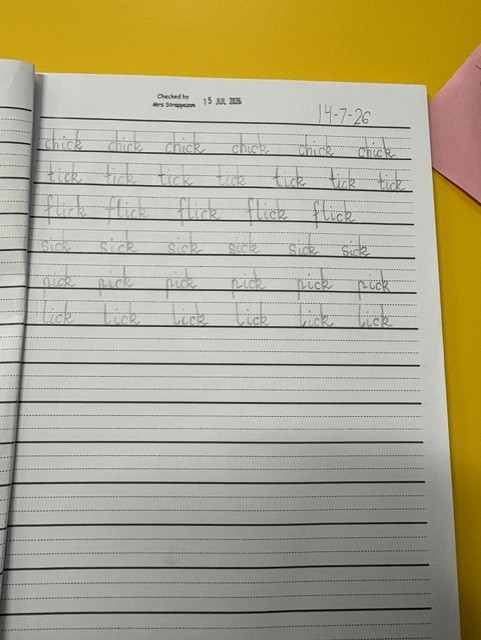 Checked by
Mrs Strappazon 15 JUL 2026
14-7-26
chick chick chick chick chick chick
tick tick tick tick tick tick tick
flick flick flick flick flick
sick sick sick sick sick sick
pick pick pick pick pick pick
lick lick lick lick lick lick